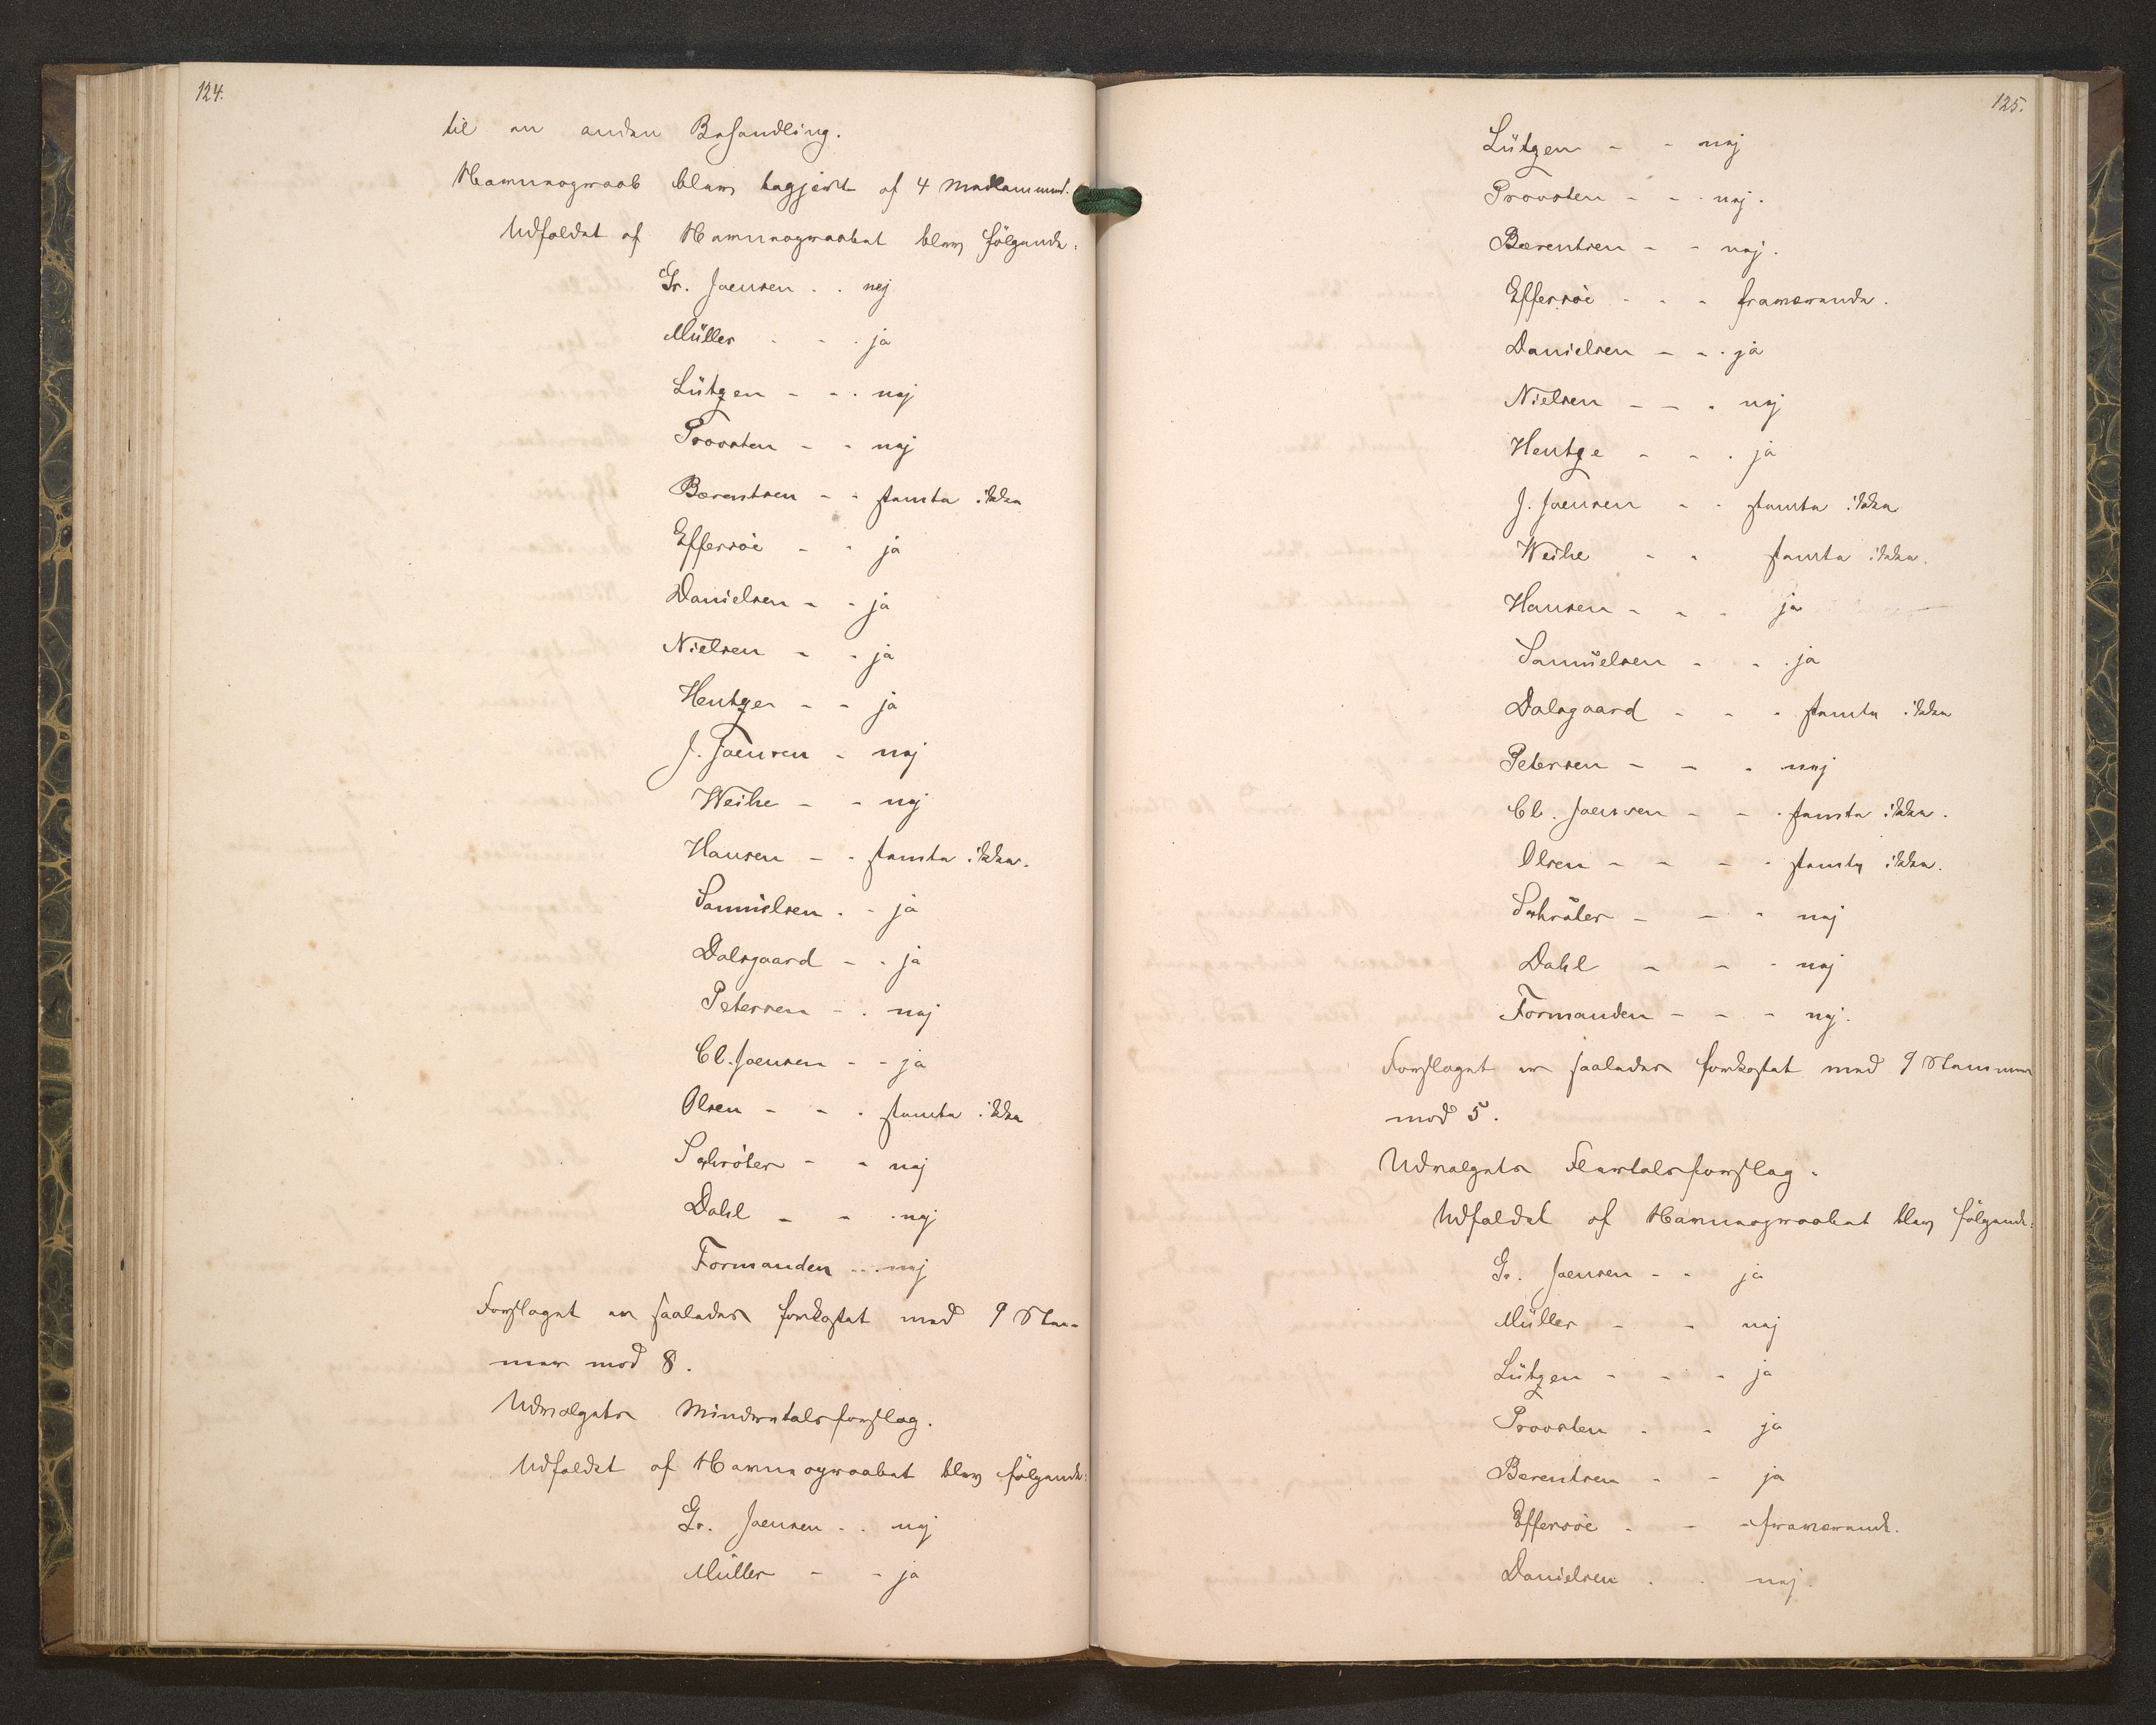 124.
til en anden Behandling.
Navneopraab blev begjært af 4 Medlemmer.
Udfaldet af Navneopraabet blev følgende:
Gr. Joensen - - nej
Müller - - - ja
Lützen - - - nej
Provsten - - nej
Bærentsen - - stemte ikke
Effersöe - - ja
Danielsen - - ja
Nielsen - - ja
Hentze - - ja
J. Joensen - nej
Weihe - - nej
Hansen - - stemte ikke.
Samuelsen - - ja
Dalsgaard - - ja
Petersen - - nej
Cl. Joensen - - ja
Olsen - - - stemte ikke
Schröter - - nej
Dahl - - - nej
Formanden - - - nej
Forslaget er saaledes forkastet med 9 Stem-
mer mod 8.
Udvalgets Mindretalsforslag.
Udfaldet af Navneopraabet blev følgende:
Gr. Joensen - - nej
Müller - - ja
125.
Lützen - - nej
Provsten - - - nej.
Bærentsen - - nej.
Effersöe - - - fraværende.
Danielsen - - - ja
Nielsen - - - nej
Hentze - - - ja
J. Joensen - - stemte ikke
Weihe - - stemte ikke.
Hansen - - - ja
Samüelsen - - - ja
Dalsgaard - - - stemte ikke
Petersen - - - nej
Cl. Joensen - - - stemte ikke.
Olsen - - - - stemte ikke.
Schröter - - - nej
Dahl - - - nej
Formanden - - - nej.
Forslaget er saaledes forkastet med 9 Stemmer
mod 5.
Udvalgets Flertalsforslag.
Udfaldet af Navneopraabet blev følgende:
Gr. Joensen - - ja
Müller - - nej
Lützen - - - ja
Provsten - - ja
Bærentsen - - ja
Effersöe - - - fraværende.
Danielsen - - nej.